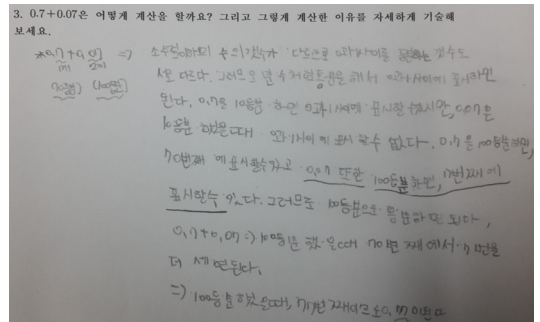 3. 0.7+0.07은 어떻게 계산을 할까요? 그리고 그렇게 계산한 이유를 자세하게 기술해
보세요.
0.7 + 0.07 => 소수점아래의 수의 갯수가 다르므로 0과 1사이를 하는 것수도
1개 2개 서로 다르다. 그러므로 분수처럼 통분을 해서 0과 1사이에 표시하면
(10등분) (100등분) 된다. 0.7을 10등분 하면 0과 1사이에 표시할 수 있지만, 0.07은
10등분 했을때 0과 1사이에 표시 할수 없다. 0.7을 100등분하면,
70번째에 표시할수 있고 0.07 또한 100등분하면, 7번째에
표시할수 있다. 그러므로 100등분으로 통분하면 된다.
0.7+0.07 => 100등분 했을때 70번 째에서 7번을
더 세면된다.
=> 100등분 했을때, 77번째이므로 0.77이된다